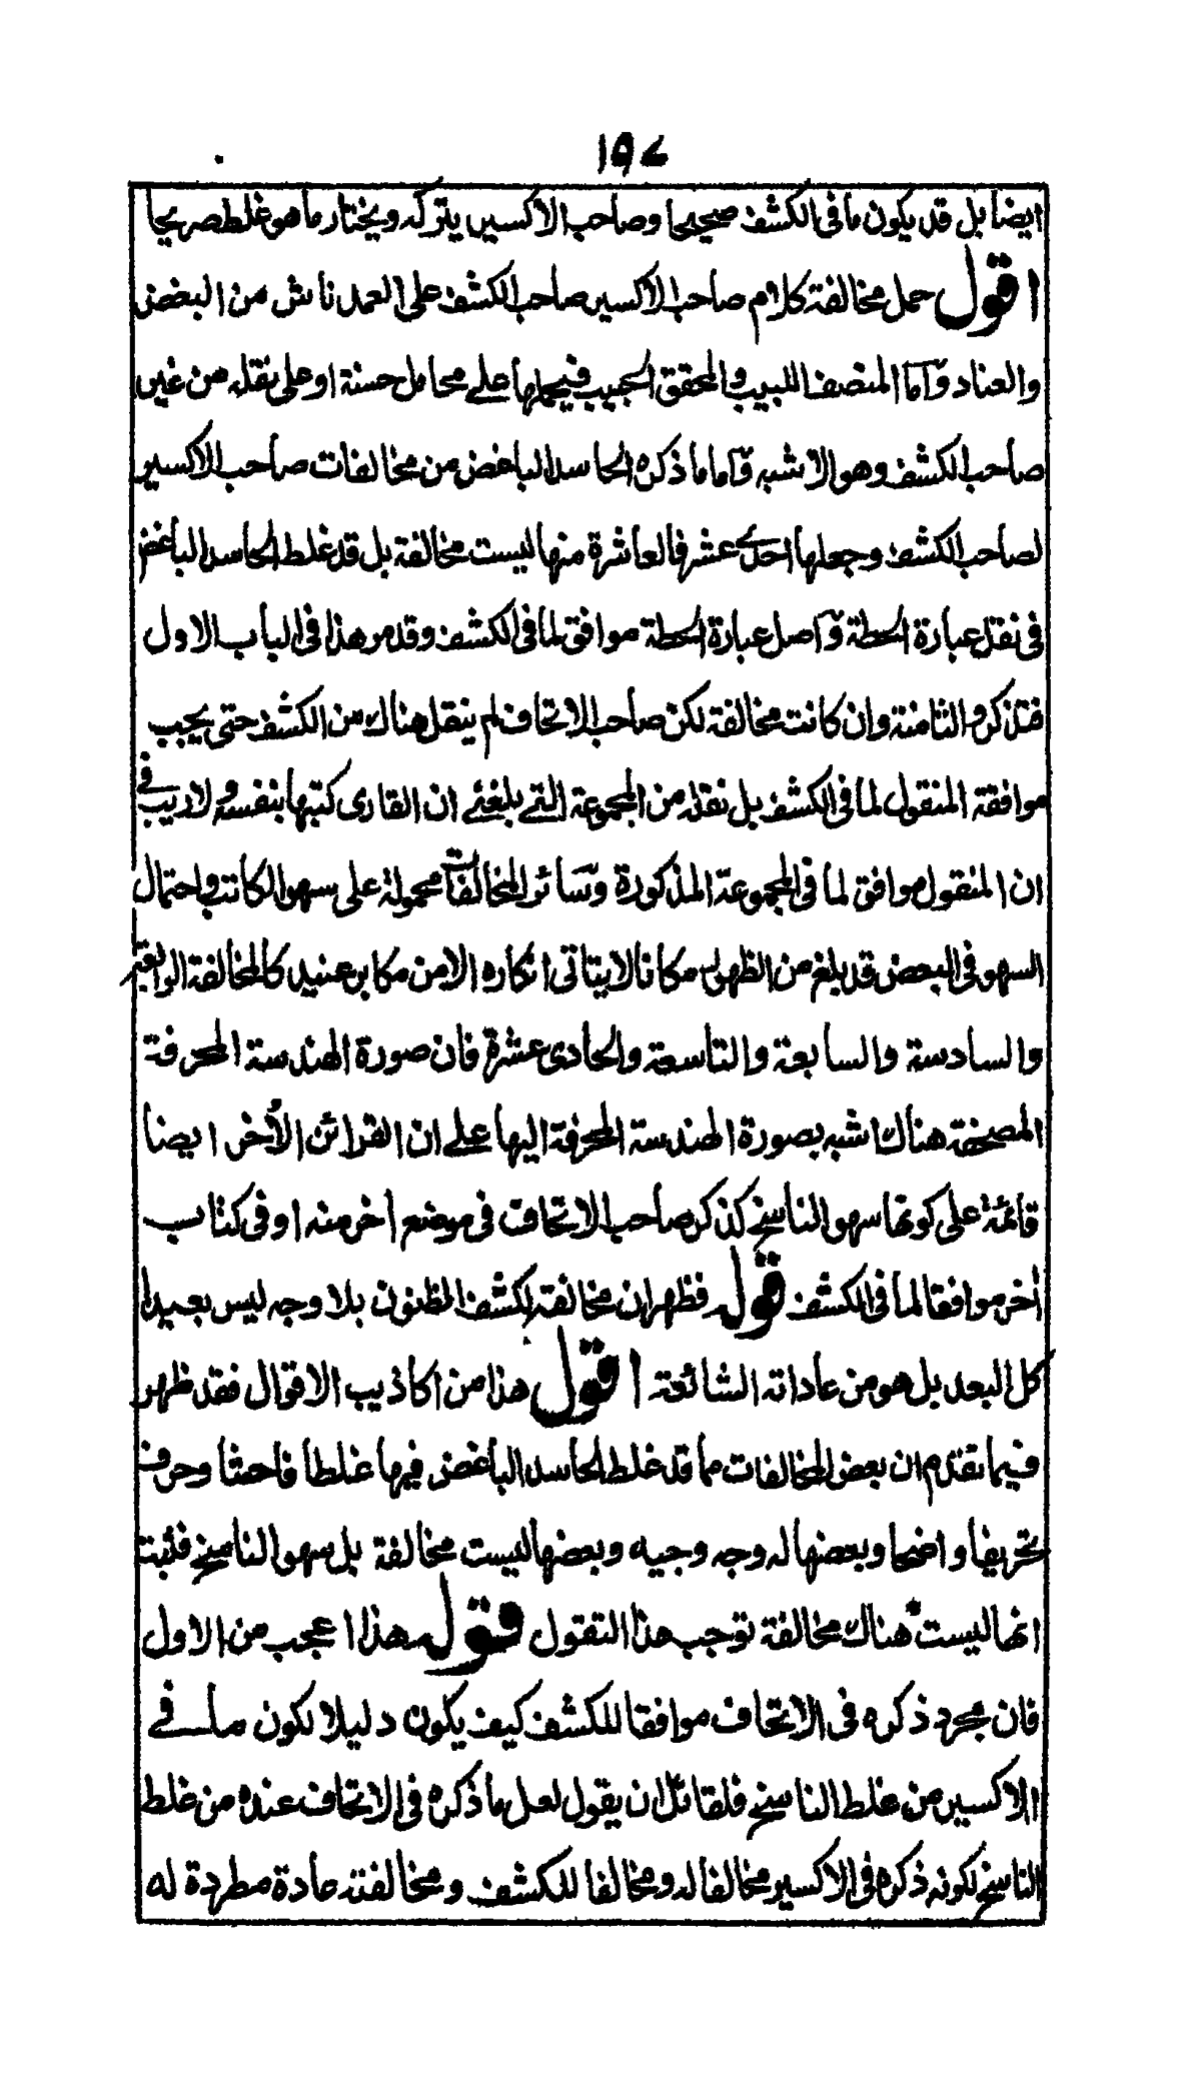 ١٥٧
ايضا بل قد يكون ما فى الكشف صحيحا وصاحب الاكسير يتركه ويختار ما هو غلط صريحا
اقول حمل مخالفة كلام صاحب الاكسير صاحب الكشف على العمد ناش من البغض
والعناد وآما المنصف اللبيب والمحقق النجيب فيحملها علے محامل حسنة او على نقله من غير
صاحب الكشف وهو الاشبه وآما ما ذكره الحاسد الباغض من مخالفات صاحب الاكسير
لصاحب الكشف وجعلها احدے عشر فالعاشرة منها ليست مخالفة بل قد غلط الحاسد الباغض
فى نقل عبارة الحطة وآصل عبارة الحطة موافق لما فى الكشف وقد مر هذا فى الباب الاول
فتذكر والثامنة وان كانت مخالفة لكن صاحب الاتحاف لم ينقل هناك من الكشف حتى يجب
موافقة المنقول لما فى الكشف بل نقله من المجموعة التے بلغنے ان القارى كتبها بنفسه ولا ريب فے
ان المنقول موافق لما فى المجموعة المذكورة وسآئر المخالفات محمولة على سهو الكاتب واحتمال
السهو فى البعض قد بلغ من الظهور مكانا لا يتاتى انكاره الا من مكابر عنيد كالمخالفة الرابعة
والسادسة والسابعة والتاسعة والحادى عشرة فان صورة الهندسة المحرفة
المصحفة هناك اشبه بصورة الهندسة المحرفة اليها علے ان القرائن الأخر ايضا
قائمة على كونها سهو الناسخ كذكر صاحب الاتحاف فى موضع اخر منه او فى كتاب
أخر موافقا لما فى الكشف قوله فظهر ان مخالفة لكشف الظنون بلا وجه ليس بعيدا
كل البعد بل هو من عاداته الشائعة اقول هذا من اكاذيب الاقوال فقد ظهر
فيما تقدم ان بعض المخالفات مما قد غلط الحاسد الباغض فيها غلطا فاحشا وحرف
تحريفا واضحا وبعضها له وجه وجيه وبعضها ليست مخالفة بل سهو الناسخ فثبت
انها ليست هناك مخالفة توجب هذا التقول قوله هذا اعجب من الاول
فان مجرد ذكره فى الاتحاف موافقا للكشف كيف يكون دليلا لكون ما فے
الاكسير من غلط الناسخ فلقائل ان يقول لعل ما ذكره فى الاتحاف عنده من غلط
الناسخ لكونه ذكره فى الاكسير مخالفا له ومخالفا للكشف ومخالفته عادة مطردة له